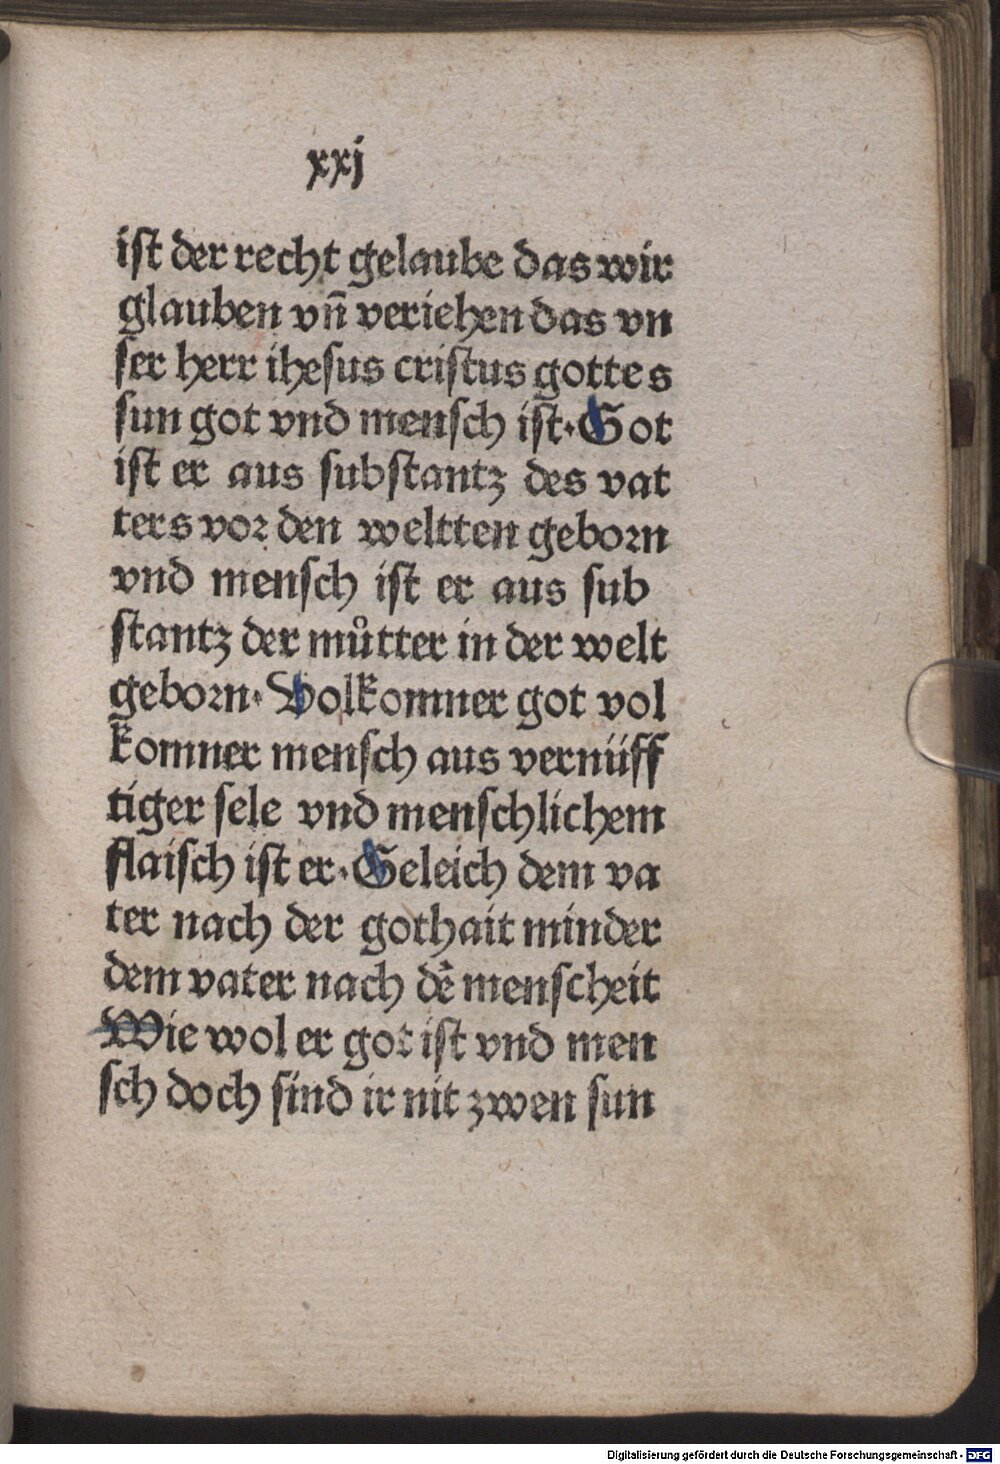 xxj
ist der recht gelaube das wir
glauben vn̄ veriehen das vn
ser herr ihesus cristus gottes
sun got vnd mensch ist. Got
ist er aus substantz des vat
ters vor den weltten geborn
vnd mensch ist er aus sub
stantz der můtter in der welt
geborn. Volkomner got vol
komner mensch aus vernüff
tiger sele vnd menschlichem
flaisch ist er. Geleich dem va
ter nach der gothait minder
dem vater nach dē menscheit
Wie wol er got ist vnd men
sch doch sind ir nit zwen sun
Digitalisierung gefördert durch die Deutsche Forschungsgemeinschaft - DFG